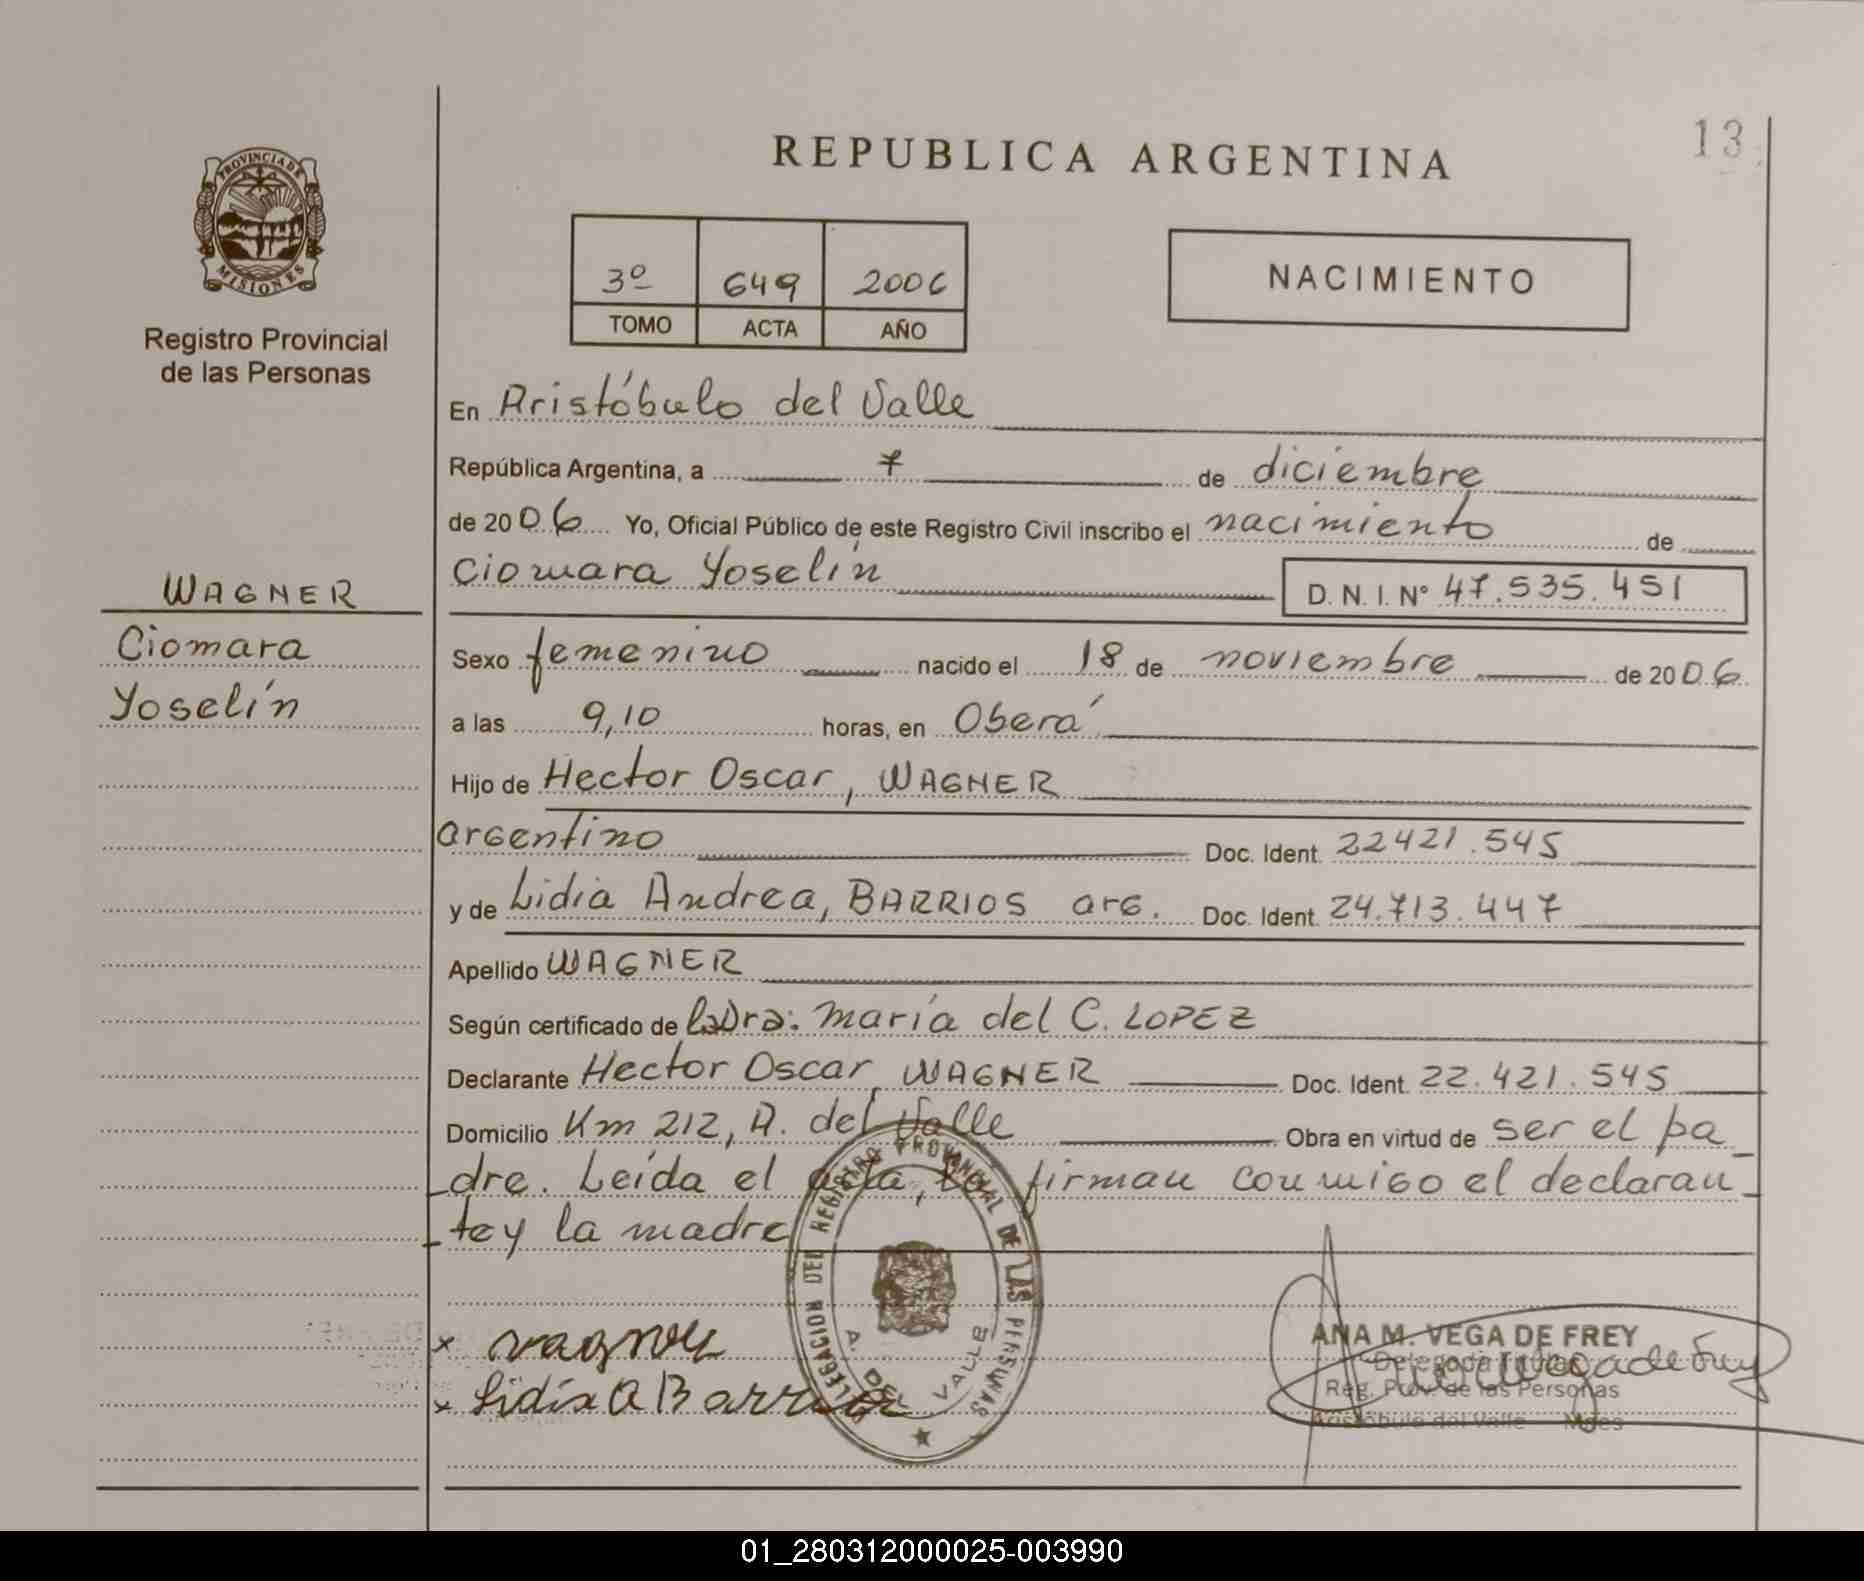 13
REPUBLICA ARGENTINA
PROVINCIA DE
MISIONES
Registro Provincial
de las Personas
3º 649 2006
TOMO ACTA AÑO
NACIMIENTO
En Aristóbulo del Valle
República Argentina, a 7 de diciembre
de 2006 Yo, Oficial Público de este Registro Civil inscribo el nacimiento de
Ciomara Yoselín D. N. I. Nº 47.535.451
WAGNER
Ciomara
Yoselín
Sexo femenino nacido el 18 de noviembre de 2006
a las 9,10 horas, en Oberá
Hijo de Hector Oscar, WAGNER
argentino Doc. Ident. 22421.545
y de Lidia Andrea, BARRIOS arg. Doc. Ident. 24.713.447
Apellido WAGNER
Según certificado de la Dra: María del C. LOPEZ
Declarante Hector Oscar, WAGNER Doc. Ident. 22.421.545
Domicilio Km 212, A. del Valle Obra en virtud de ser el pa_
_dre. Leída el acta, la firman conmigo el declaran_
_te y la madre
DELEGACION DEL REGISTRO PROVINCIAL DE LAS PERSONAS
A. DEL VALLE
x Wagner
x Lidia A Barrios
ANA M. VEGA DE FREY
Delegada Titular
Reg. Prov. de las Personas
Aristóbulo del Valle Mnes
01_280312000025-003990